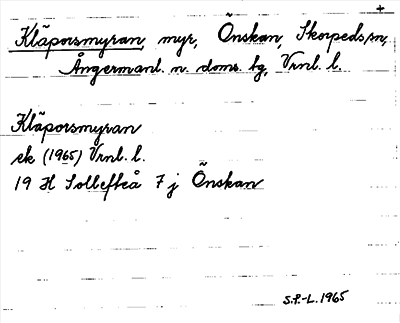 +
Kläporsmyran, myr, Önskan, Skorpeds sn,
Ångermanl. n. doms. bg, Vrnl. l.
Kläporsmyran
ek (1965) Vrnl. l.
19 H Sollefteå 7 j Önskan
S.P.-L. 1965